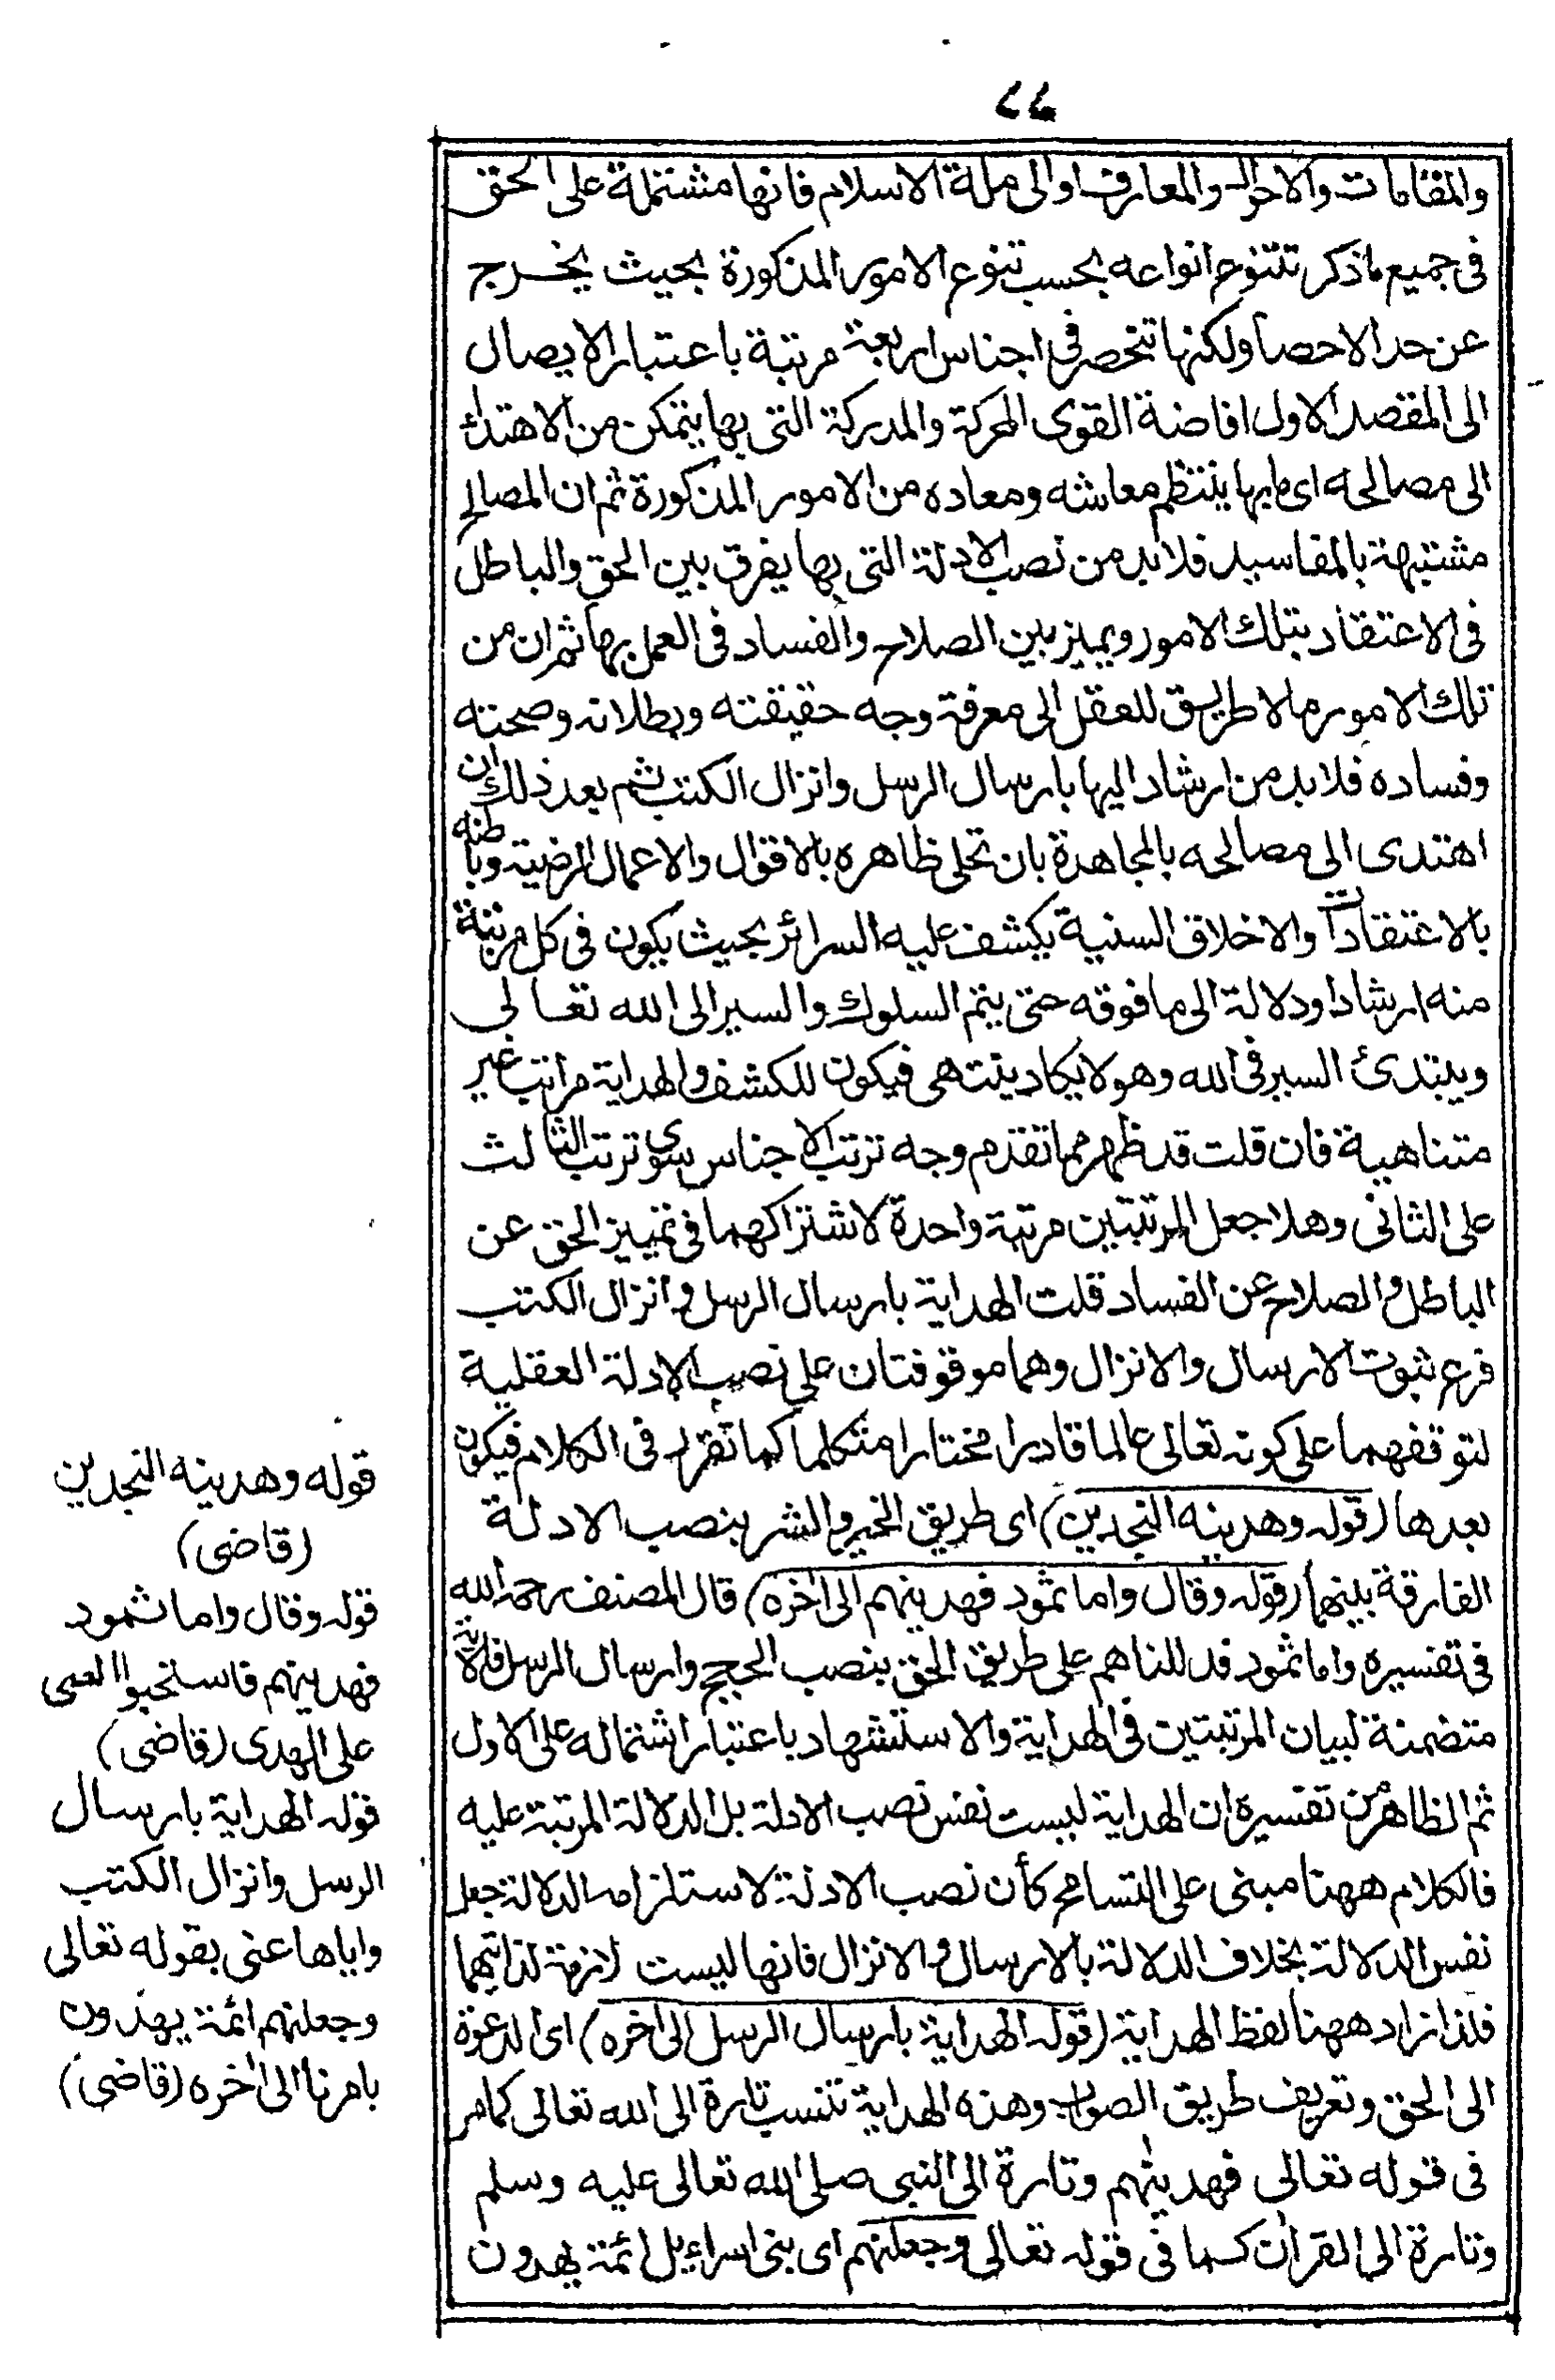 ٧٧
والمقامات والاحوال والمعارف او الى ملة الاسلام فانها مشتملة على الحق
فى جميع ماذكر تتنوع انواعه بحسب تنوع الامور المذكورة بحيث يخرج
عن حد الاحصا ولكنها تنحصر فى اجناس اربعة مرتبة باعتبار الايصال
الى المقصد الاول افاضة القوى المحركة والمدركة التى بها يتمكن من الاهتداء
الى مصالحه اى مابها ينتظم معاشه ومعاده من الامور المذكورة ثم ان المصالح
مشتبهة بالمفاسد فلابد من نصب الادلة التى بها يفرق بين الحق والباطل
فى الاعتقاد بتلك الامور ويميز بين الصلاح والفساد فى العمل بها ثم ان من
تلك الامور ما لا طريق للعقل الى معرفة وجه حقيقته وبطلانه وصحته
وفساده فلابد من ارشاد اليها بارسال الرسل وانزال الكتب ثم بعد ذلك ان
اهتدى الى مصالحه بالمجاهدة بان تحلى ظاهره بالاقوال والاعمال المرضية وباطنه
بالاعتقادات والاخلاق السنية يكشف عليه السرائر بحيث يكون فى كل مرتبة
منه ارشادا ودلالة الى ما فوقه حتى يتم السلوك والسير الى الله تعالى
ويبتدئ السير فى الله وهو لا يكاد ينتهى فيكون للكشف والهداية مراتب غير
متناهية فان قلت قد ظهر مما تقدم وجه ترتب الاجناس سوى ترتب الثالث
على الثانى وهلا جعل المرتبتين مرتبة واحدة لاشتراكهما فى تمييز الحق عن
الباطل والصلاح عن الفساد قلت الهداية بارسال الرسل وانزال الكتب
فرع ثبوت الارسال والانزال وهما موقوفتان على نصب الادلة العقلية
لتوقفهما على كونه تعالى عالما قادرا مختارا متكلما كما تقرر فى الكلام فيكون
بعدها (قوله وهدينه النجدين) اى طريق الخير والشر بنصب الادلة
الفارقة بينهما (قوله وقال واما ثمود فهدينهم الى اخره) قال المصنف رحمه الله
فى تفسيره واما ثمود فدللناهم على طريق الحق بنصب الحجج وارسال الرسل فالاية
متضمنة لبيان المرتبتين فى الهداية والاستشهاد باعتبار اشتماله على الاول
ثم الظاهر من تفسيره ان الهداية ليست نفس نصب الادلة بل الدلالة المرتبة عليه
فالكلام ههنا مبنى على التسامح كأن نصب الادلة لاستلزامه الدلالة جعل
نفس الدلالة بخلاف الدلالة بالارسال والانزال فانها ليست لازمة لذاتيهما
فلذا زاد ههنا لفظ الهداية (قوله الهداية بارسال الرسل الى اخره) اى الدعوة
الى الحق وتعريف طريق الصواب وهذه الهداية تنسب تارة الى الله تعالى كما مر
فى قوله تعالى فهدينهم وتارة الى النبى صلى الله تعالى عليه وسلم
وتارة الى القران كما فى قوله تعالى وجعلنهم اى بنى اسراءيل ائمة يهدون
قوله وهدينه النجدين
(قاضى)
قوله وقال واما ثمود
فهدينهم فاستحبوا العمى
على الهدى (قاضى)
قوله الهداية بارسال
الرسل وانزال الكتب
واياها عنى بقوله تعالى
وجعلنهم ائمة يهدون
بامرنا الى اخره (قاضى)